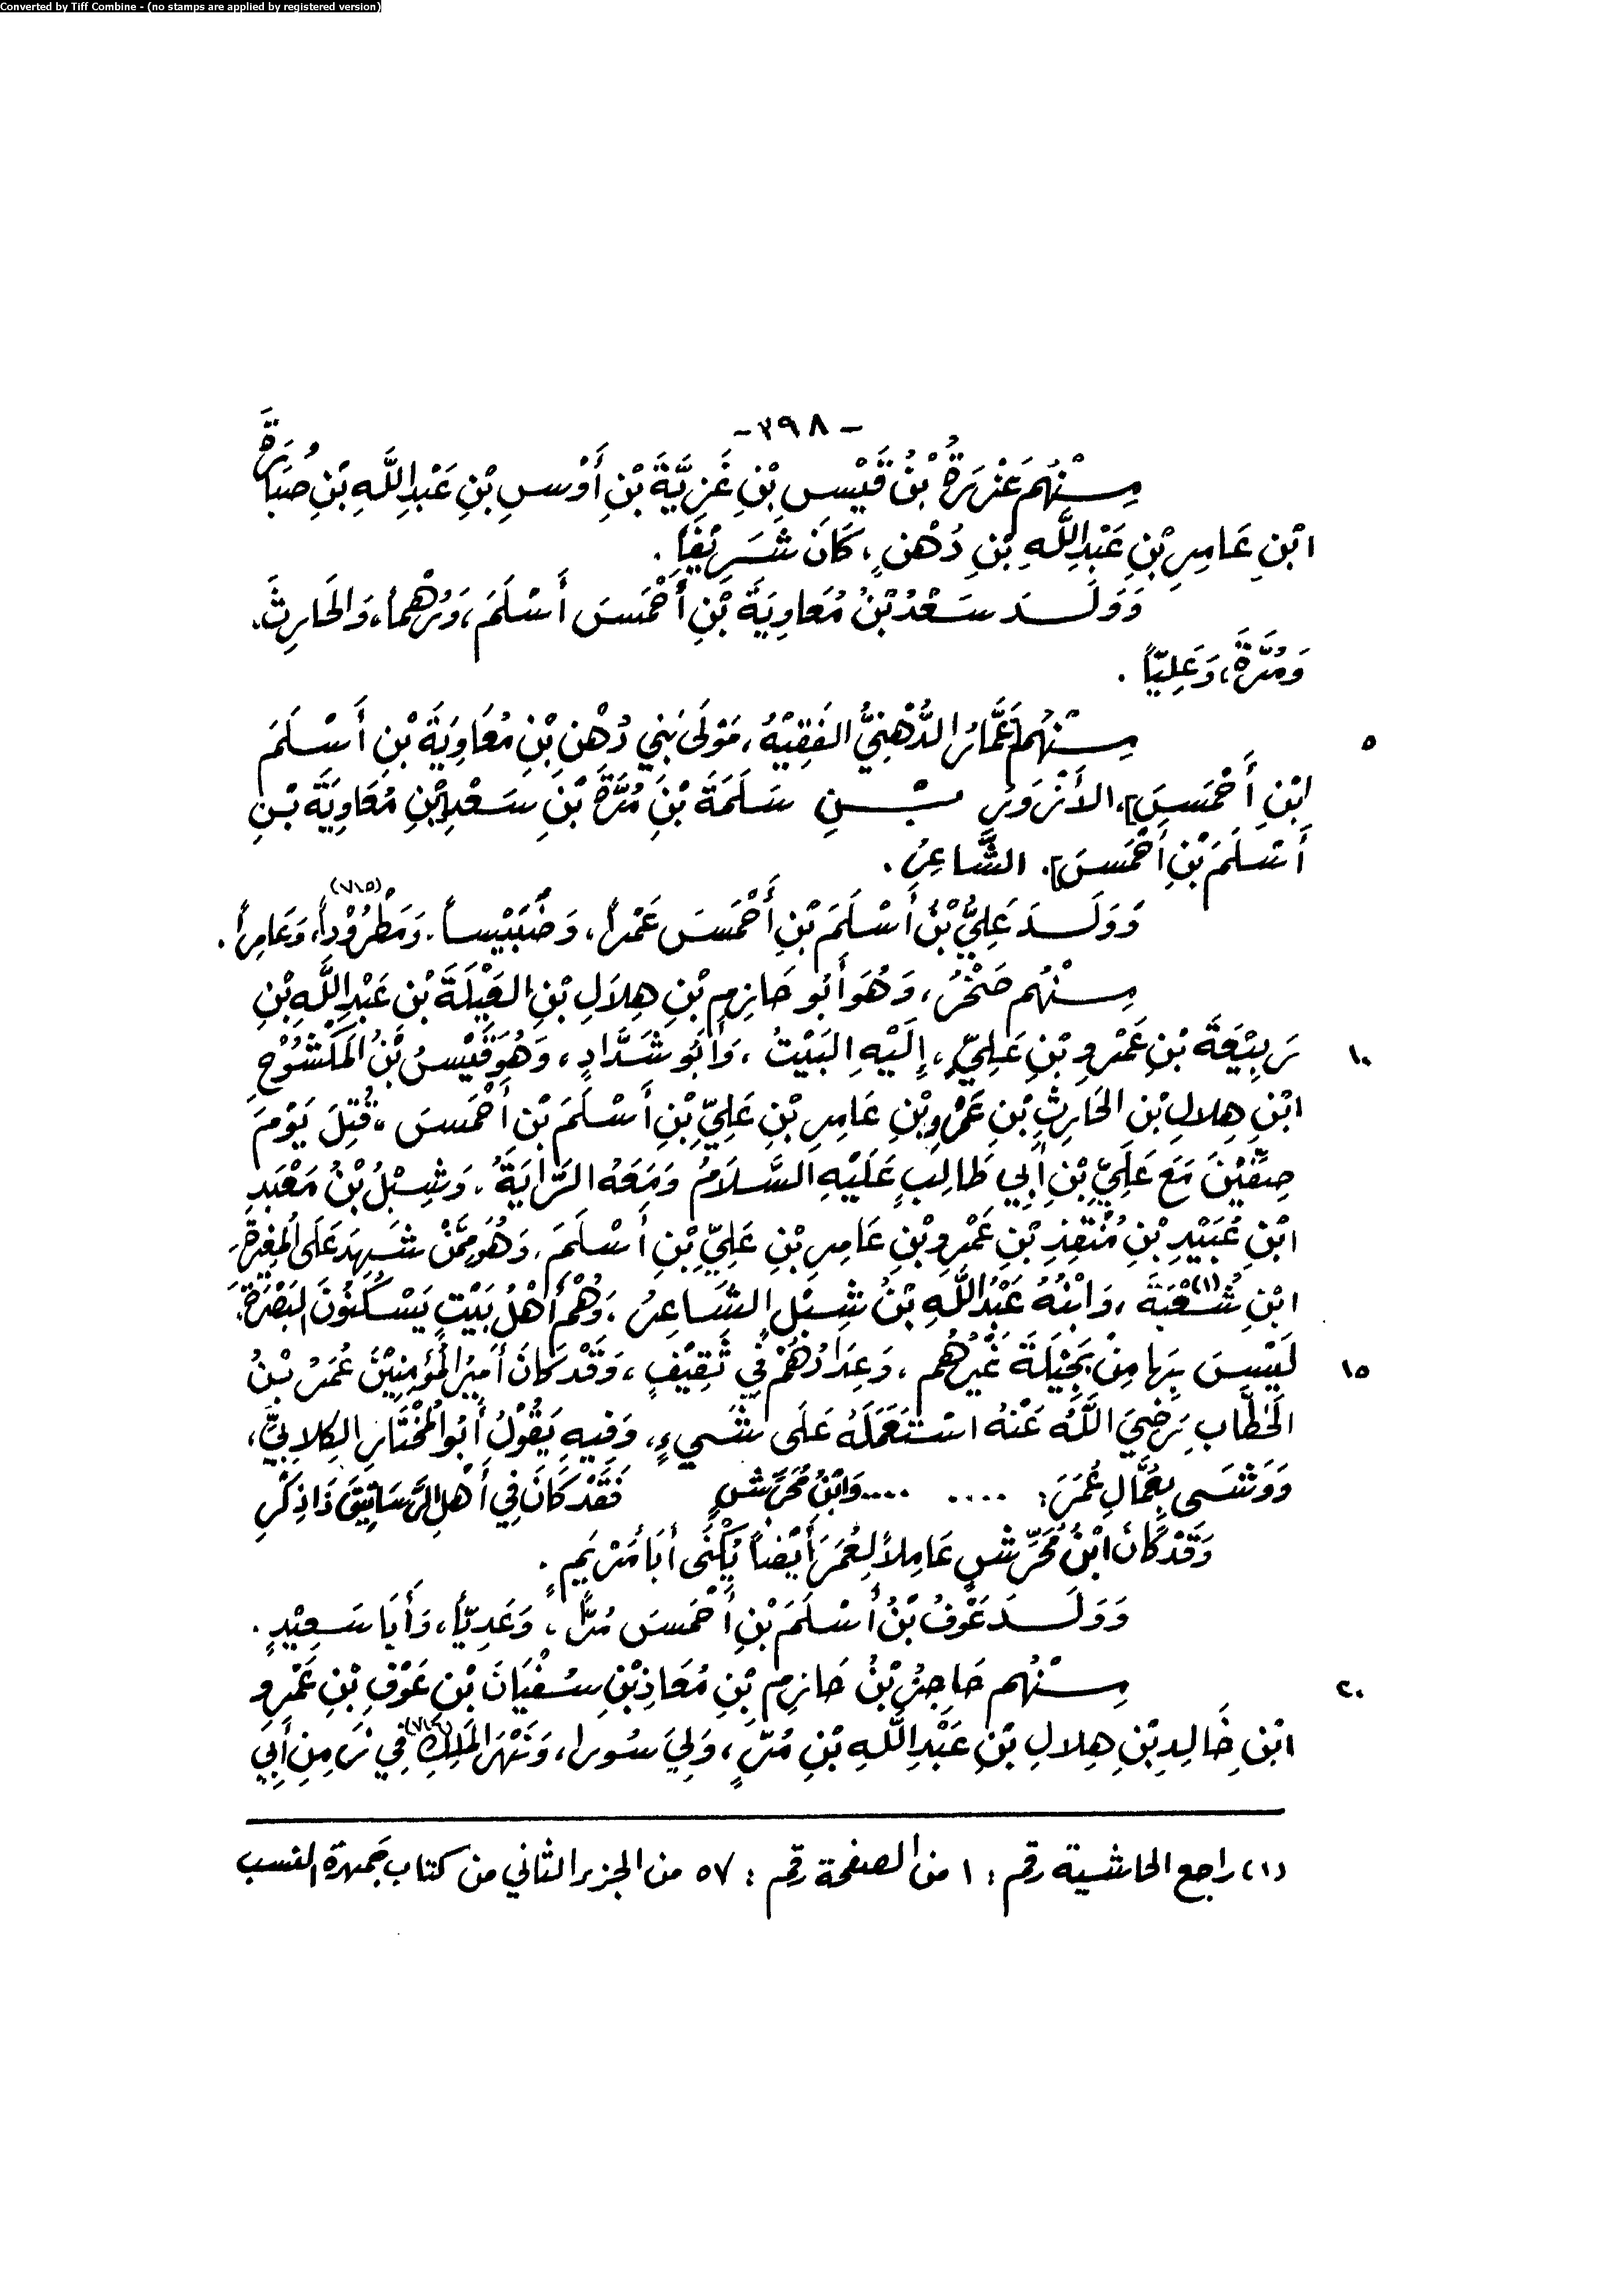 Converted by Tiff Combine - (no stamps are applied by registered version)
-٣٩٨-
مِنْهُم عَزْرَةُ بْنُ قَيْسِ بْنِ غَزِيَّةَ بْنِ أَوْسِ بْنِ عَبْدِ اللَّهِ بْنِ صُبَارَةَ
ابْنِ عَامِرِ بْنِ عَبْدِ اللَّهِ بْنِ دُهْنٍ، كَانَ شَرِيْفَاً.
وَوَلَدَ سَعْدُ بْنُ مُعَاوِيَةَ بْنِ أَحْمَسَ أَسْلَمَ، وَرُهْماً، وَالحَارِثَ،
وَمُرَّةَ، وَعَلِيّاً.
٥ مِنْهُم [عَمَّارُ الدُّهْنِيُّ الفَقِيْهُ، مَوْلَى بَنِي دُهْنِ بْنِ مُعَاوِيَةَ بْنِ أَسْلَمَ
ابْنِ أَحْمَسَ]، الأَزْوَرِ بْنِ سَلَمَةَ بْنِ مُرَّةَ بْنِ سَعْدِ [بْنِ مُعَاوِيَةَ بْنِ
أَسْلَمَ بْنِ أَحْمَسَ]. الشَّاعِرُ.
وَوَلَدَ عَلِيُّ بْنُ أَسْلَمَ بْنِ أَحْمَسَ عَمْراً، وَضُبَيْساً، وَمَطْرُوْداً(٧١٥)، وَعَامِراً.
مِنْهُم صَخْرُ، وَهُوَ أَبُو حَازِمِ بْنِ هِلَالِ بْنِ العَيْلَةَ بْنِ عَبْدِ اللَّهِ بْنِ
١٠ رَبِيْعَةَ بْنِ عَمْرِو بْنِ عَلِيٍّ، إِلَيْهِ البَيْتُ، وَأَبُو شَدَّادٍ، وَهُوَ قَيْسُ بْنُ المَكْشُوْحِ
ابْنِ هِلالِ بْنِ الحَارِثِ بْنِ عَمْرِو بْنِ عَامِرِ بْنِ عَلِيِّ بْنِ أَسْلَمَ بْنِ أَحْمَسَ، قُتِلَ يَوْمَ
صِفِّيْنَ مَعَ عَلِيِّ بْنِ أَبِي طَالِبٍ عَلَيْهِ السَّلَامُ وَمَعَهُ الرَّايَةُ. وَشِبْلُ بْنُ مَعْبَدِ
ابْنِ عُبَيْدِ بْنِ مُنْقِذِ بْنِ عَمْرِو بْنِ عَامِرِ بْنِ عَلِيِّ بْنِ أَسْلَمَ، وَهُوَ مِمَّنْ شَهِدَ عَلَى المُغِيْرَةِ
ابْنِ شُعْبَةَ(١)، وَابْنُهُ عَبْدُ اللَّهِ بْنُ شِبْلٍ الشَّاعِرُ، وَهُمْ أَهْلُ بَيْتٍ يَسْكُنُونَ البَصْرَةَ،
١٥ لَيْسَ بِهَا مِنْ بَجِيْلَةَ غَيْرُهُم، وَعِدَادُهُمْ فِي ثَقِيْفٍ، وَقَدْ كَانَ أَمِيْرُ المُؤْمِنِيْنَ عُمَرُ بْنُ
الخَطَّابِ رَضِيَ اللَّهُ عَنْهُ اسْتَعْمَلَهُ عَلَى شَيءٍ، وَفِيهِ يَقُوْلُ أَبُو المُخْتَارِ الكِلابِيُّ،
وَوَشَى بِعُمَّالِ عُمَرَ: .... ....وَابْنُ مُحَرِّشٍ فَقَدْ كَانَ فِي أَهْلِ الرَّسَاتِيْقِ ذَا ذِكْرِ
وَقَدْ كَانَ ابْنُ مُحَرِّشٍ عَامِلاً لِعُمَرَ أَيْضاً يُكْنَى أَبَا مَرْيَمٍ.
وَوَلَدَ عَوْفُ بْنُ أَسْلَمَ بْنِ أَحْمَسَ مُرّاً، وَعَدِيّاً، وَأَبَا سَعِيْدٍ.
٢٠ مِنْهُم حَاجِزُ بْنُ حَازِمِ بْنِ مُعَاذِ بْنِ سُفْيَانَ بْنِ عَوْفِ بْنِ عَمْرِو
ابْنِ خَالِدِ بْنِ هِلالِ بْنِ عَبْدِ اللَّهِ بْنِ مُرٍّ، وَلِيَ سُورا، وَنَهْرَ المَلِكِ فِي زَمِنِ أَبِي
(١) راجع الحاشية رقم: ١ من الصفحة رقم: ٥٧ من الجزء الثاني من كتاب جمهرة النسب